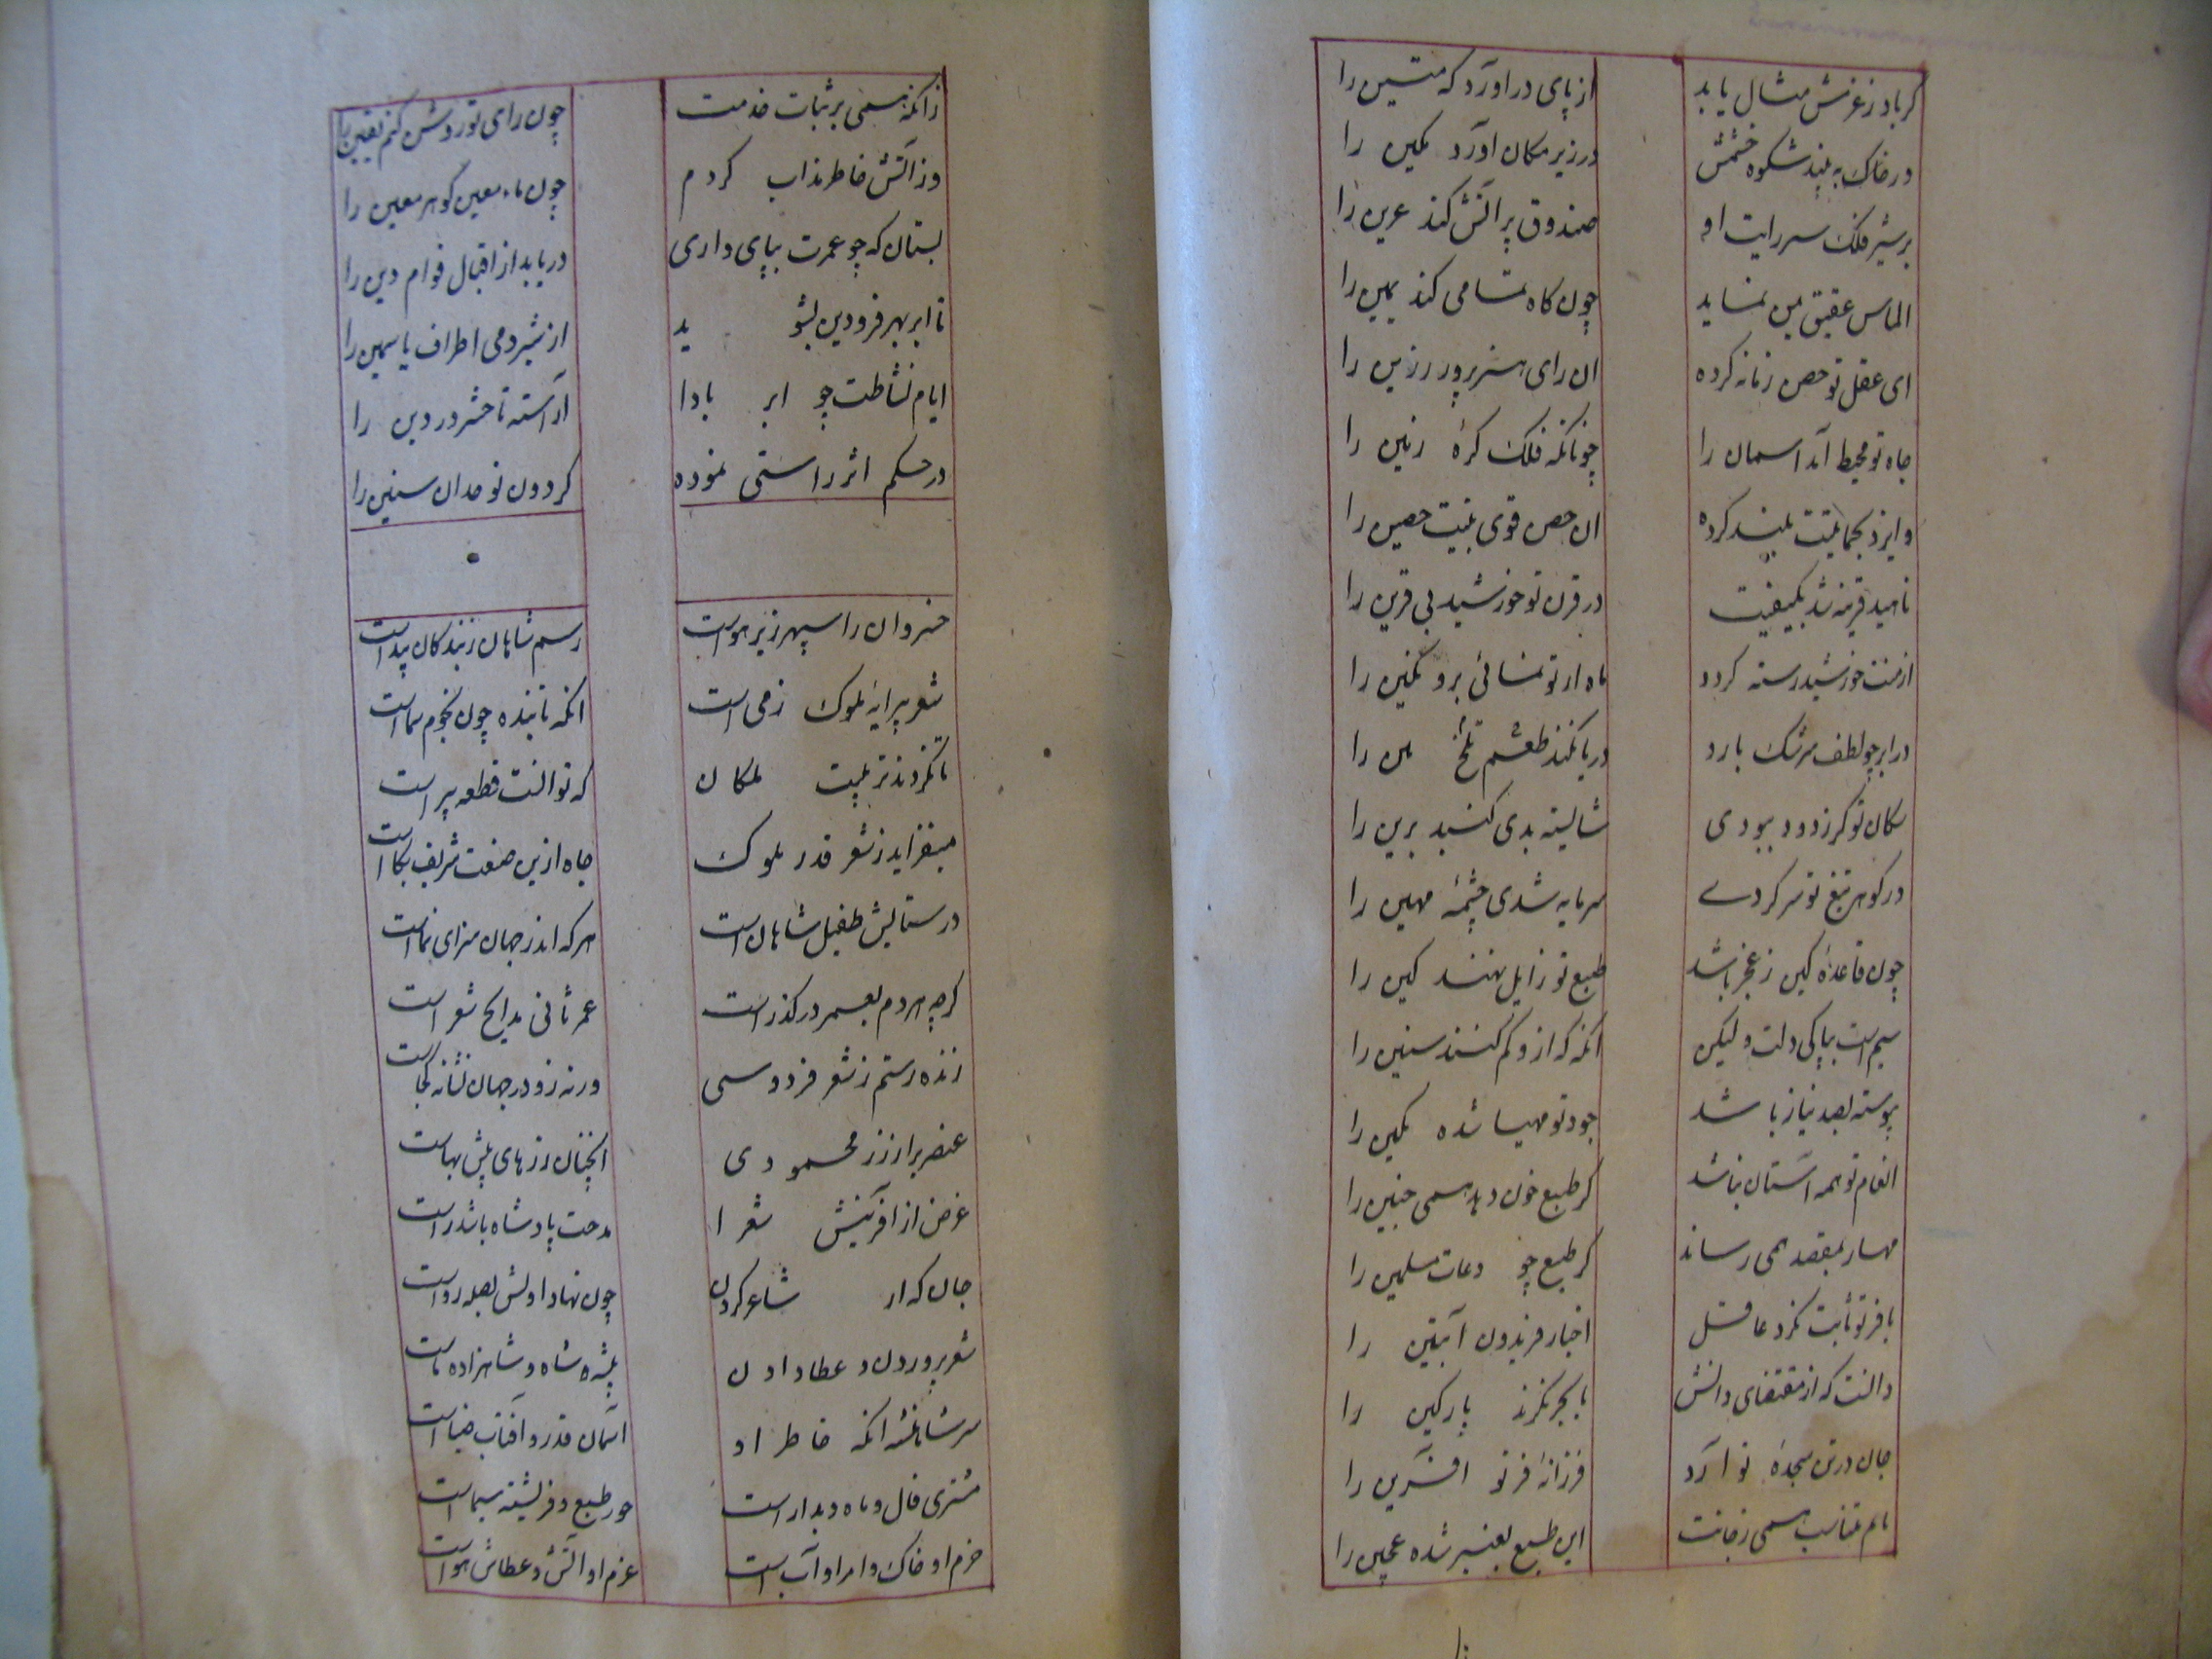 کر باد ز عزمش مثال یابد از پای در اورد که متین را
در خاک به بیند شکوه خشمش در زیر مکان اورد مکین را
بر شیر فلک سر رایت او صندوق پر اتش کند عرین را
الماس عقیق یمن نماید چون کاه تمامی کند یمین را
ای عقل تو حصن زمانه کرده ان رای هنر پرور رزین را
جاه تو محیط آمد اسمان را چونانکه فلک کرهٔ زمین را
و ایزد بحمایتت بلند کرده ان حصن قوی بنیت حصین را
ناهید قرینه شد بکیفیت در قرن تو خورشید بی قرین را
از منت خورشید رسته کردد ماه ار تو نمائی برو نکین را
در ابر چو لطف سرشک بارد دریا نکند طعم تلخ را
مکان تو کر زود ببودی شایسته بدی کنبد برین را
در کوهر تیغ تو سر کردے سرمایه شدی چشمهٔ مهین را
چون قاعدهٔ کین ز عجز باشد طبع تو زایل نهند کین را
سیم است بپاکی دلت ولیکن انکه که ازو کم کنند سنین را
پیوسته بصد نیاز باشد جود تو مهیا شده مکین را
انعام تو همه استان نباشد کر طبع خون دهد همی جنین را
مهسار بمقصد همی رساند کر طبع چو دعات مسلمین را
با فر تو ثابت نکرد عاقل اخبار فریدون آبتین را
دانست که از مقتضای دانش با بحر نکرند پارکین را
جان در تن سجدهٔ تو آرد فرزانه فر تو افرین را
نام تناسب همی زخانت این طبع بعنبر شده عجین را
زانکه همی بر ثبات خدمت چون رای تو روشن کنم یقین را
وز آتش خاطر مذاب کردم چون ماء معین کوهر معین را
بستان که چو عمرت بپای داری دریابد از اقبال قوام دین را
تا ابر بهر فرودین بشوید از شیر و می اطراف یاسمین را
ایام نشاطت چو ابر بادا آراسته تا حشر در دین را
در حکم اثر راستی نموده کردون نو مدان سنین را
خسروان را سپهر زیر هواست رسم شاهان زبندکان پیداست
شعر پیرایهٔ ملوک زمی است انکه تابنده چون نجوم سماست
تا نکردند تربیت ملکان که توانست قطعه پیراست
میفزاید ز شعر قدر ملوک جاه ازین صنعت شریف بکاست
در ستایش طفیل شاهان است هر که اندر جهان سزای ثناست
کرچه مردم بعمر در کذر است عمر ثانی مدایح شعر است
زنده رستم ز شعر فردوسی ورنه زو در جهان نشانه کجاست
عنصریرا ز زر محمودی انچنان رزهای بیش بهاست
غرض از آفرینش شعرا مدحت پادشاه باشد راست
جان که ار شاعر کردن چون نهاد اولش بصله رواست
شعر پروردن و عطا دادن پیشهٔ شاه و شاهزاده ماست
سرشاهنشه انکه خاطر او اسمان قدر و آفتاب ضیاست
مشتری فال و ماه دیدار است حور طبع و فرشته سیماست
حزم او خاک و امر او آب است عزم او آتش و عطاش هواست